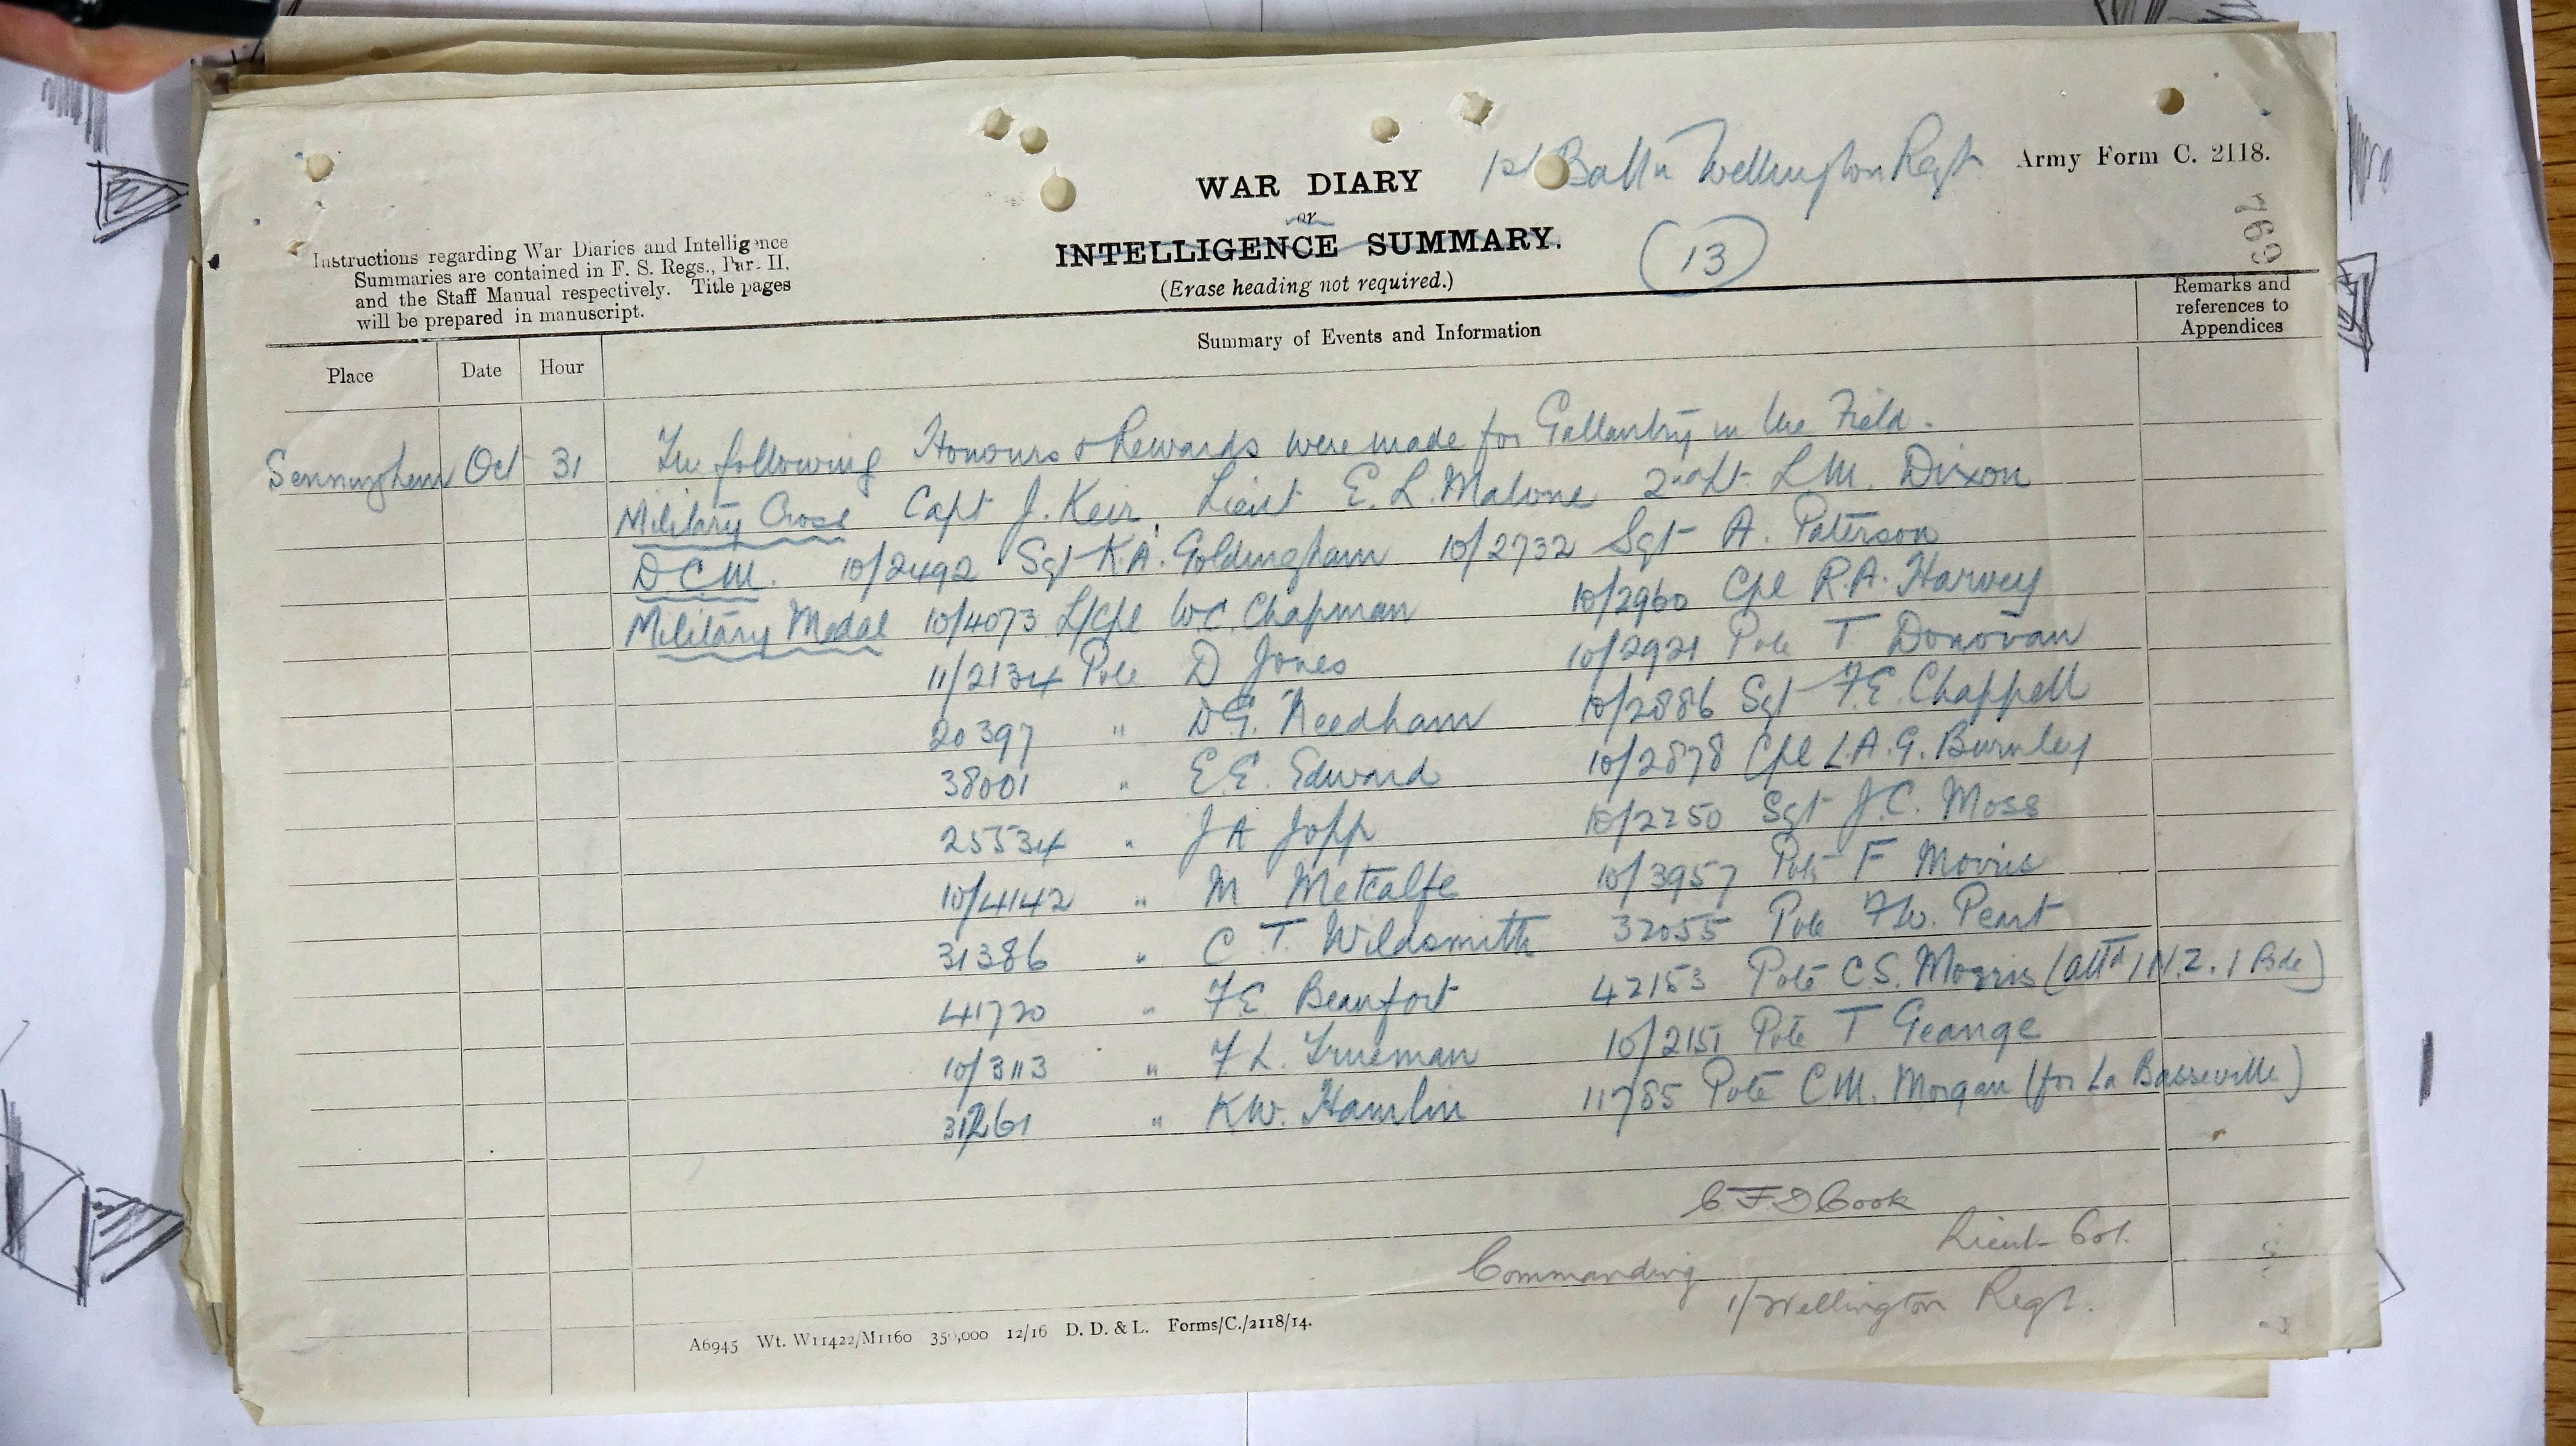 1st Battn Wellington Regt.
Army Form C. 2118.
WAR DIARY
or
INTELLIGENCE SUMMARY.
(Erase heading not required.)
13
769
Instructions regarding War Diaries and Intelligence
Summaries are contained in F. S. Regs., Par. II.
and the Staff Manual respectively. Title pages
will be prepared in manuscript.
Remarks and
references to
Appendices
Summary of Events and Information
Place Date Hour
Senninghem Oct 31 The following Honours & Rewards were made for Gallantry in the Field.
Military Cross Capt J. Keir, Lieut E. L. Malone 2nd Lt L.M. Dixon
D C M. 10/2492 Sgt K.A. Goldingham 10/2732 Sgt A. Paterson
Military Medal 10/4073 L/Cpl W.C. Chapman 10/2960 Cpl R.A. Harvey
11/2134 Pvte D Jones 10/2921 Pvte T Donovan
20397 " D.G. Needham 10/2886 Sgt F.E. Chappell
38001 " E.E. Edward 10/2878 Cpl L.A.G. Burnley
25534 " J A Jopp 10/2250 Sgt J.C. Moss
10/4142 " M Metcalfe 10/3957 Pvte F Morris
31386 " C T. Wildsmith 32055 Pvte F.W. Peart
41720 " F E Beaufort 42153 Pvte C.S. Morris (attd 1 N.Z. 1 Bde)
10/3113 " F. L. Trueman 10/2151 Pvte T Geange
31261 " K.W. Hamlin 11785 Pvte C.M. Morgan (for La Basseville)
C F D Cook
Lieut-Col.
Commanding
1/Wellington Regt.
A6945 Wt. W11422/M1160 350,000 12/16 D. D. & L. Forms/C./2118/14.